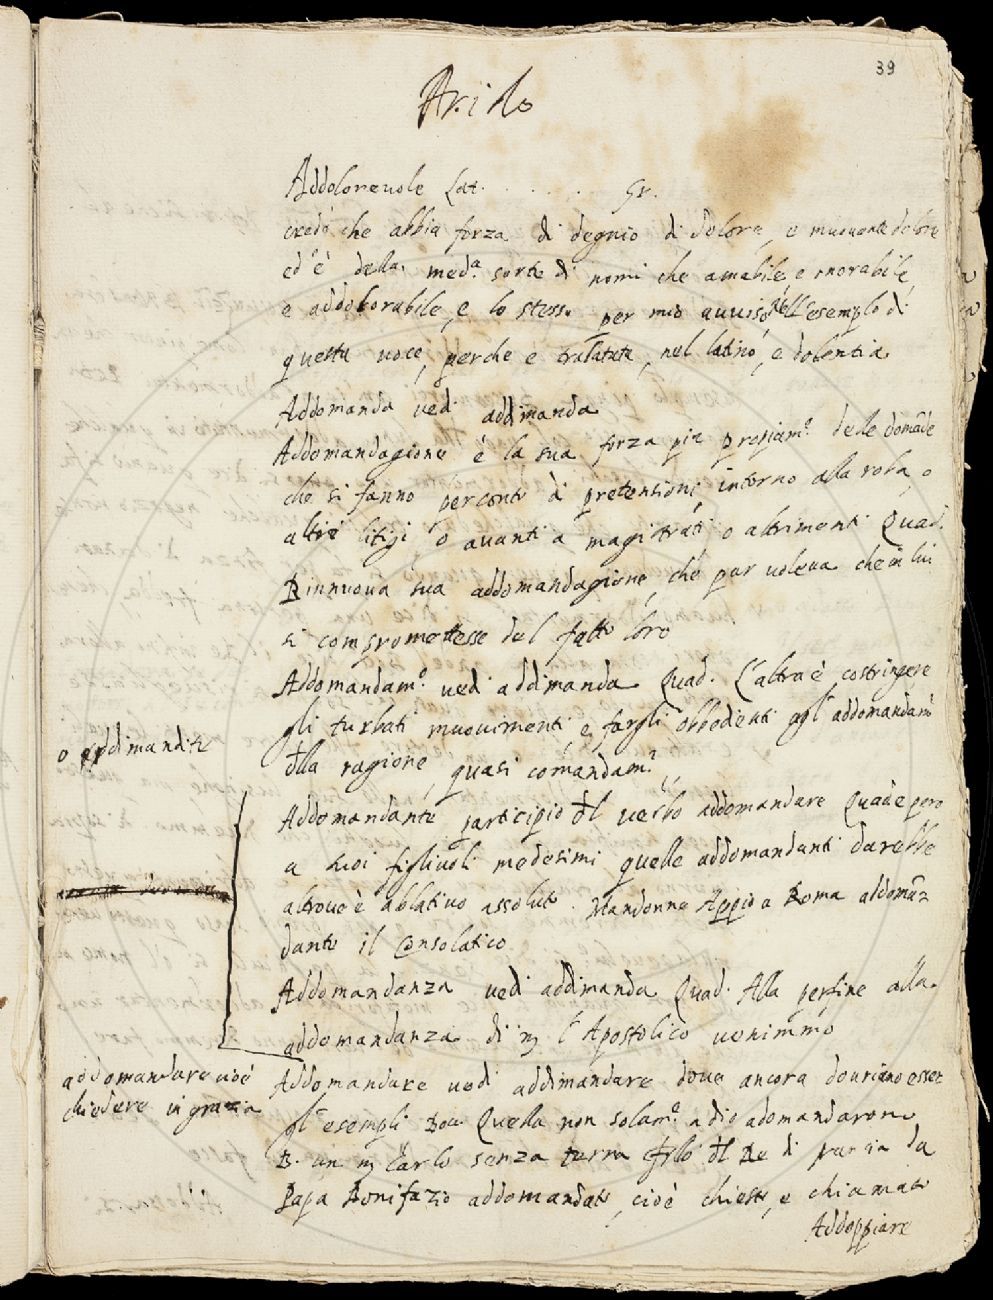 39
Arido
Addolorevole Lat. . . . . . Gr.
credo che abbia forza di degnio di dolore, e muovente dolore
ed è della med.a sorte di nomi che amabile, e onorabile
e addolorabile, e lo stesso per mio avviso nell'esemplo di
questa voce, perche è tralatata, nel latino, e dolentia
Addomanda vedi addimanda
Addomandagione è la sua forza più propiam.e delle domãde
che si fanno per conto di pretensioni intorno alla roba, o
altri litigi o avanti a magistrati o altrimenti Quad.
Rinnuova sua addomandagione, che pur voleva che in lui
si compromettesse del fatto loro
Addomandam.o vedi addimanda Quad. L'altra è costringere
gli turbati muovimenti, e fargli obbedienti agl'addomandam.
dlla ragione, quasi comandam.i
o addimandite
Addomandante participio dl verbo addomandare Quad e pero
a suoi figliuoli medesimi quelle addomandanti darebbe
altrove è ablativo assoluto. Mandonne Appio a Roma addomã
dante il Consolatico
Addomandanza vedi addimanda Quad. Alla perfine alla
addomandanza di l'Apostolico venimmo
addomandare cioè
chiedere in grazia
Addomandare vedi addimandare dove ancora dovriano esser
gl'esempli Quella non solam.e a dio adomandarono
B. un Carlo senza terra dl Re di da
Papa Bonifazio addomandato, cioè chiesto, e chiamato
Addoppiare